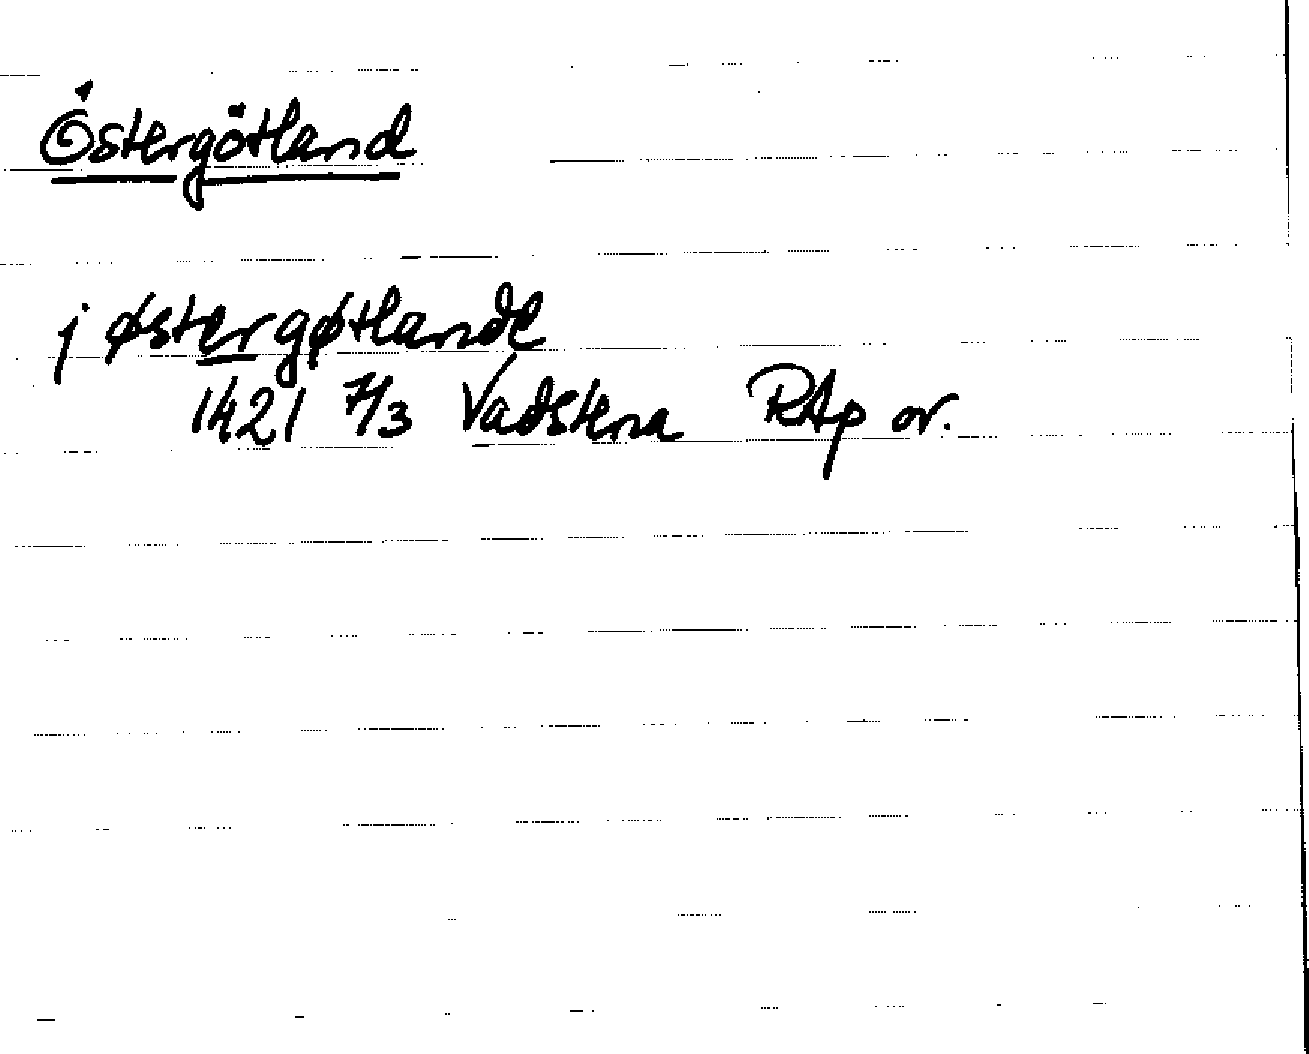 Östergötland
j østergøtlande
1421 7/3 Vadstena RAp or.